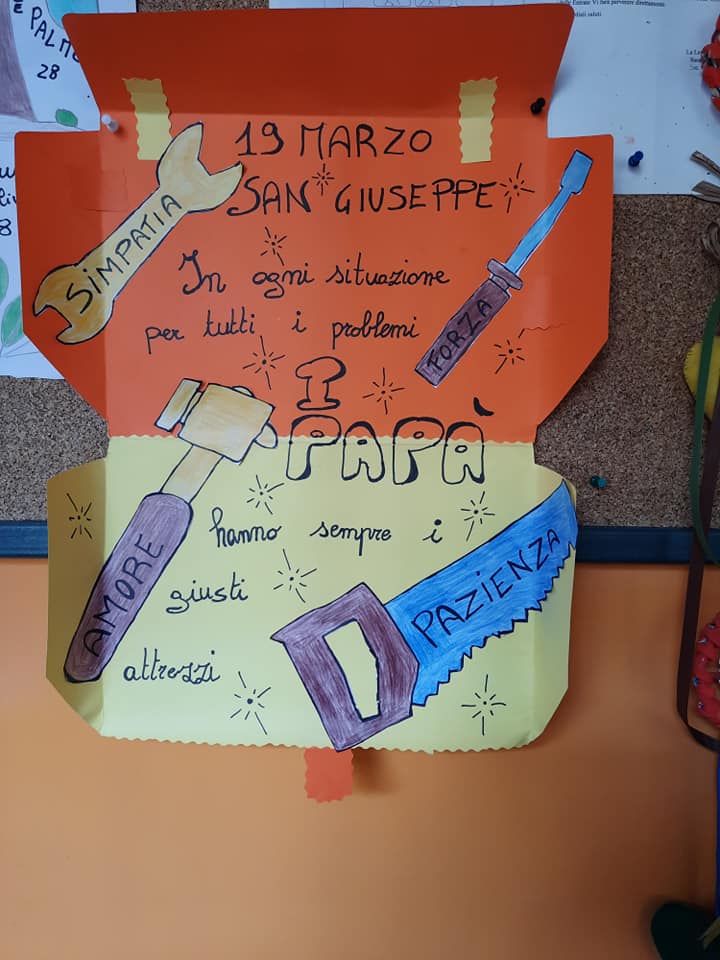 PALME
28
19 MARZO
SAN GIUSEPPE
SIMPATIA
FORZA
In ogni situazione
per tutti i problemi
I
PAPÀ
hanno sempre i
giusti
attrezzi
AMORE
PAZIENZA